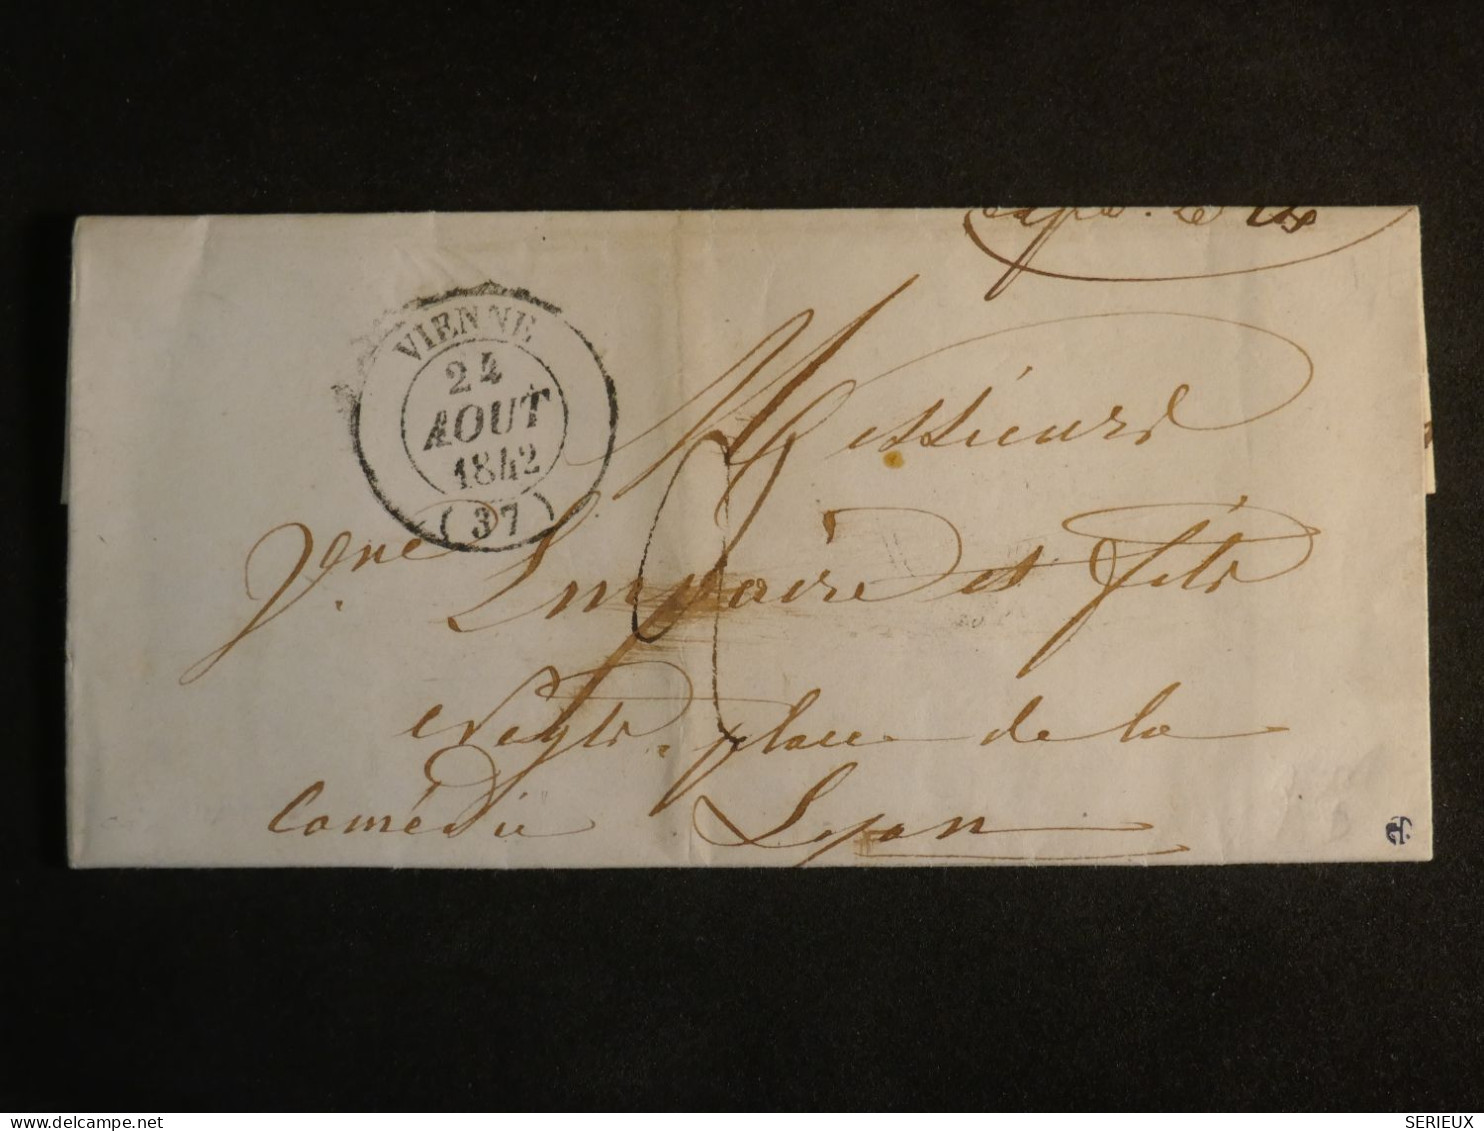 VIENNE
24
AOUT
1842
(37)
Messieurs
Lempaire et fils
Negts. place de la
Comédie Lyon
delcampe.net
SERIEUX